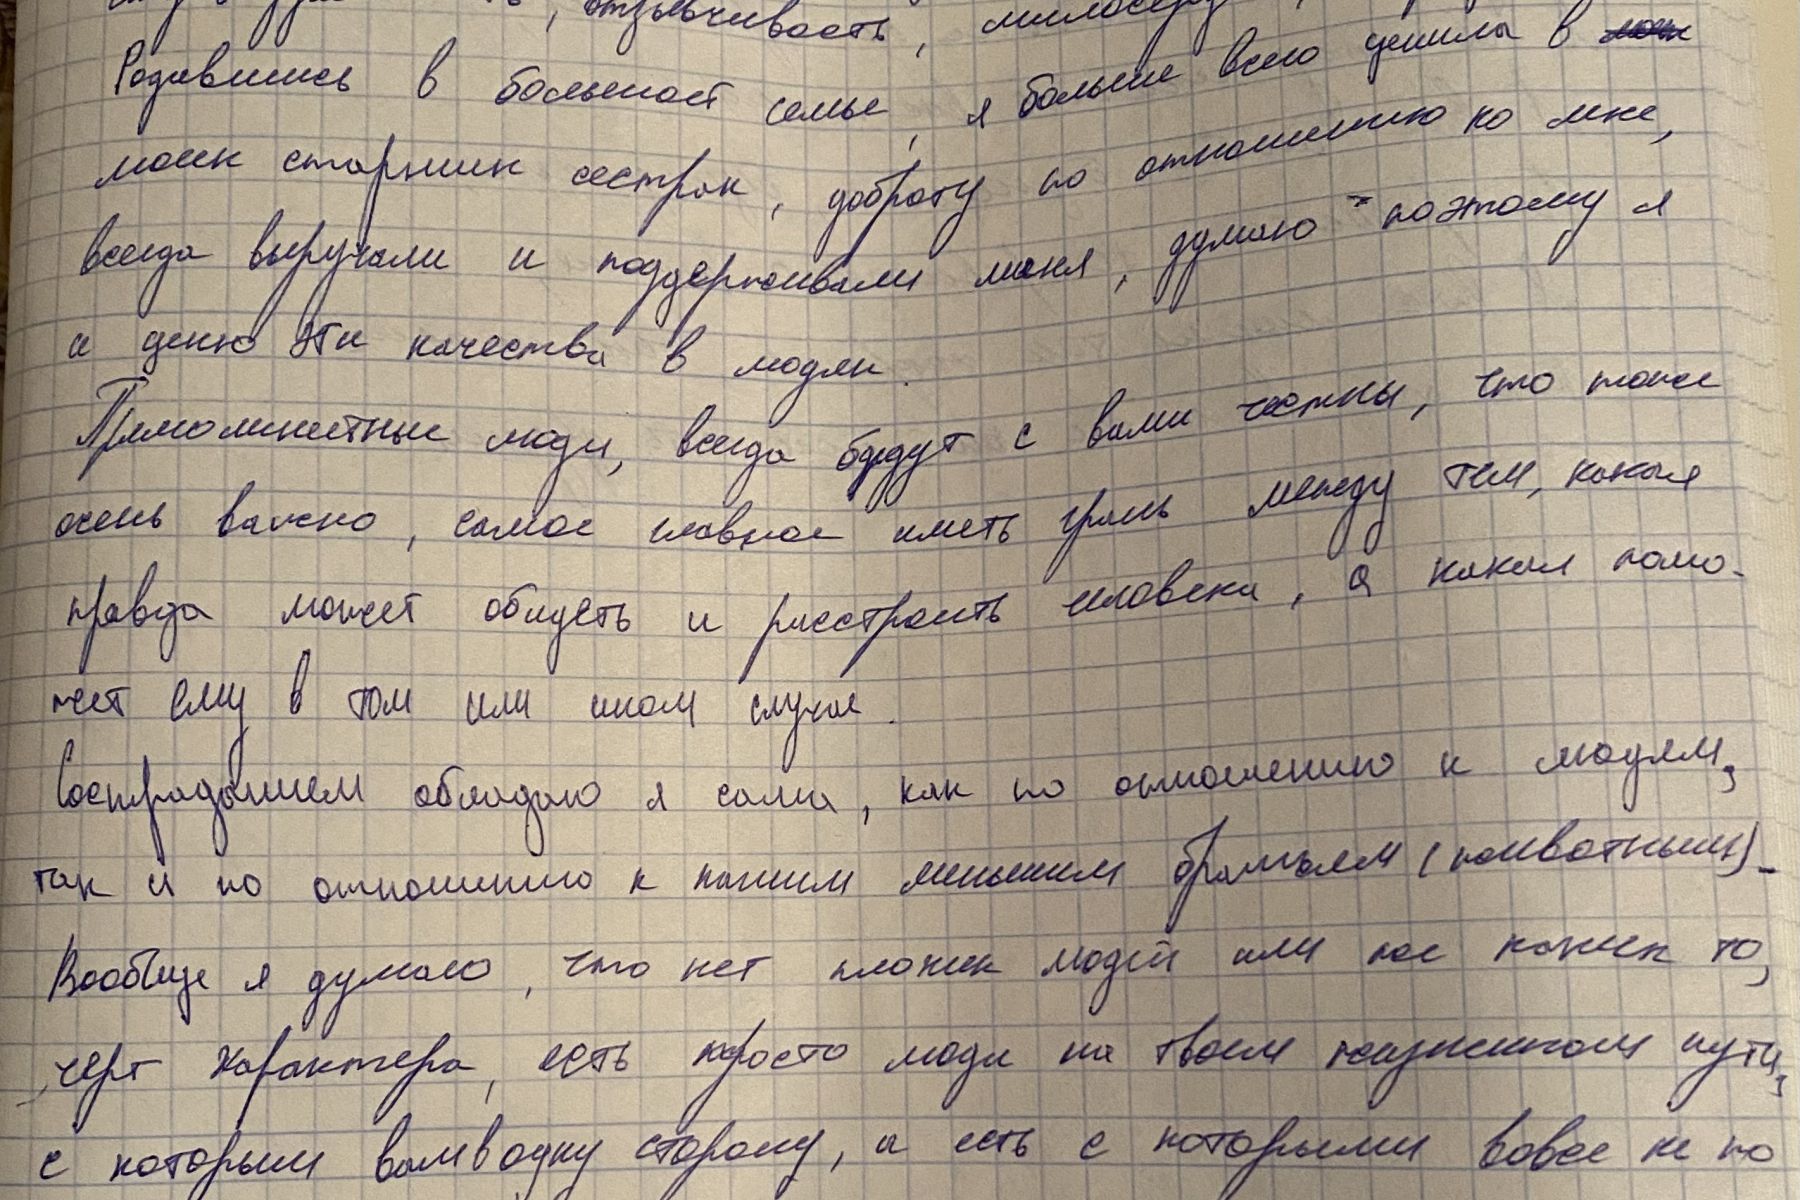 отзывчивость,
Родившись в большой семье, я больше всего ценила в
моих старших сестрах, доброту по отношению ко мне,
всегда выручали и поддерживали меня, думаю поэтому я
и ценю эти качества в людях.
Прямолинейные люди, всегда будут с вами честны, что тоже
очень важно, самое главное иметь грань между тем, какая
правда может обидеть и расстроить человека, а какая помо-
жет ему в том или ином случае.
Состраданием обладаю я сама, как по отношению к людям,
так и по отношению к нашим меньшим братьям (животным).
Вообще я думаю, что нет плохих людей или каких то,
черт характера, есть просто люди на твоем жизненном пути,
с которым вам в одну сторону, а есть с которыми вовсе не по